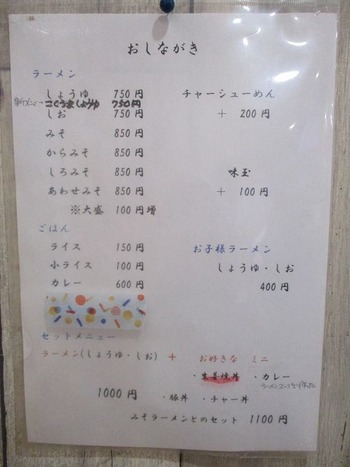 おしながき
ラーメン
しょうゆ 750円
こくうましょうゆ 750円
しお 750円
みそ 850円
からみそ 850円
しろみそ 850円
あわせみそ 850円
※大盛 100円増
チャーシューめん
+ 200円
味玉
+ 100円
ごはん
ライス 150円
小ライス 100円
カレー 600円
お子様ラーメン
しょうゆ・しお
400円
セットメニュー
ラーメン(しょうゆ・しお) + お好きな ミニ
・生姜焼丼 ・カレー
1000円 ・豚丼 ・チャー丼
みそラーメンとのセット 1100円